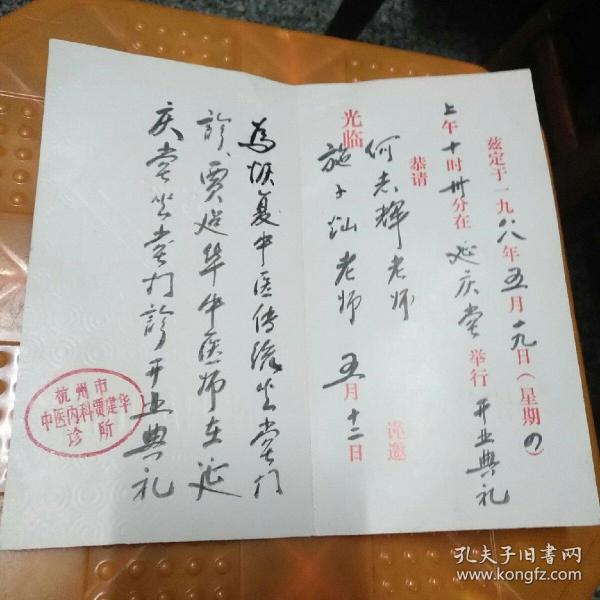 兹定于一九八八年五月十九日(星期四)
上午十时卅分在延庆堂举行开业典礼
恭请
何志辉老师
施子灿老师
光临
谨邀
五月十二日
為恢复中医传统坐堂门
診,贾建华中医师在延
庆堂坐堂门診开业典礼
杭州市
中医内科贾建华
诊所
孔夫子旧书网
www.kongfz.com